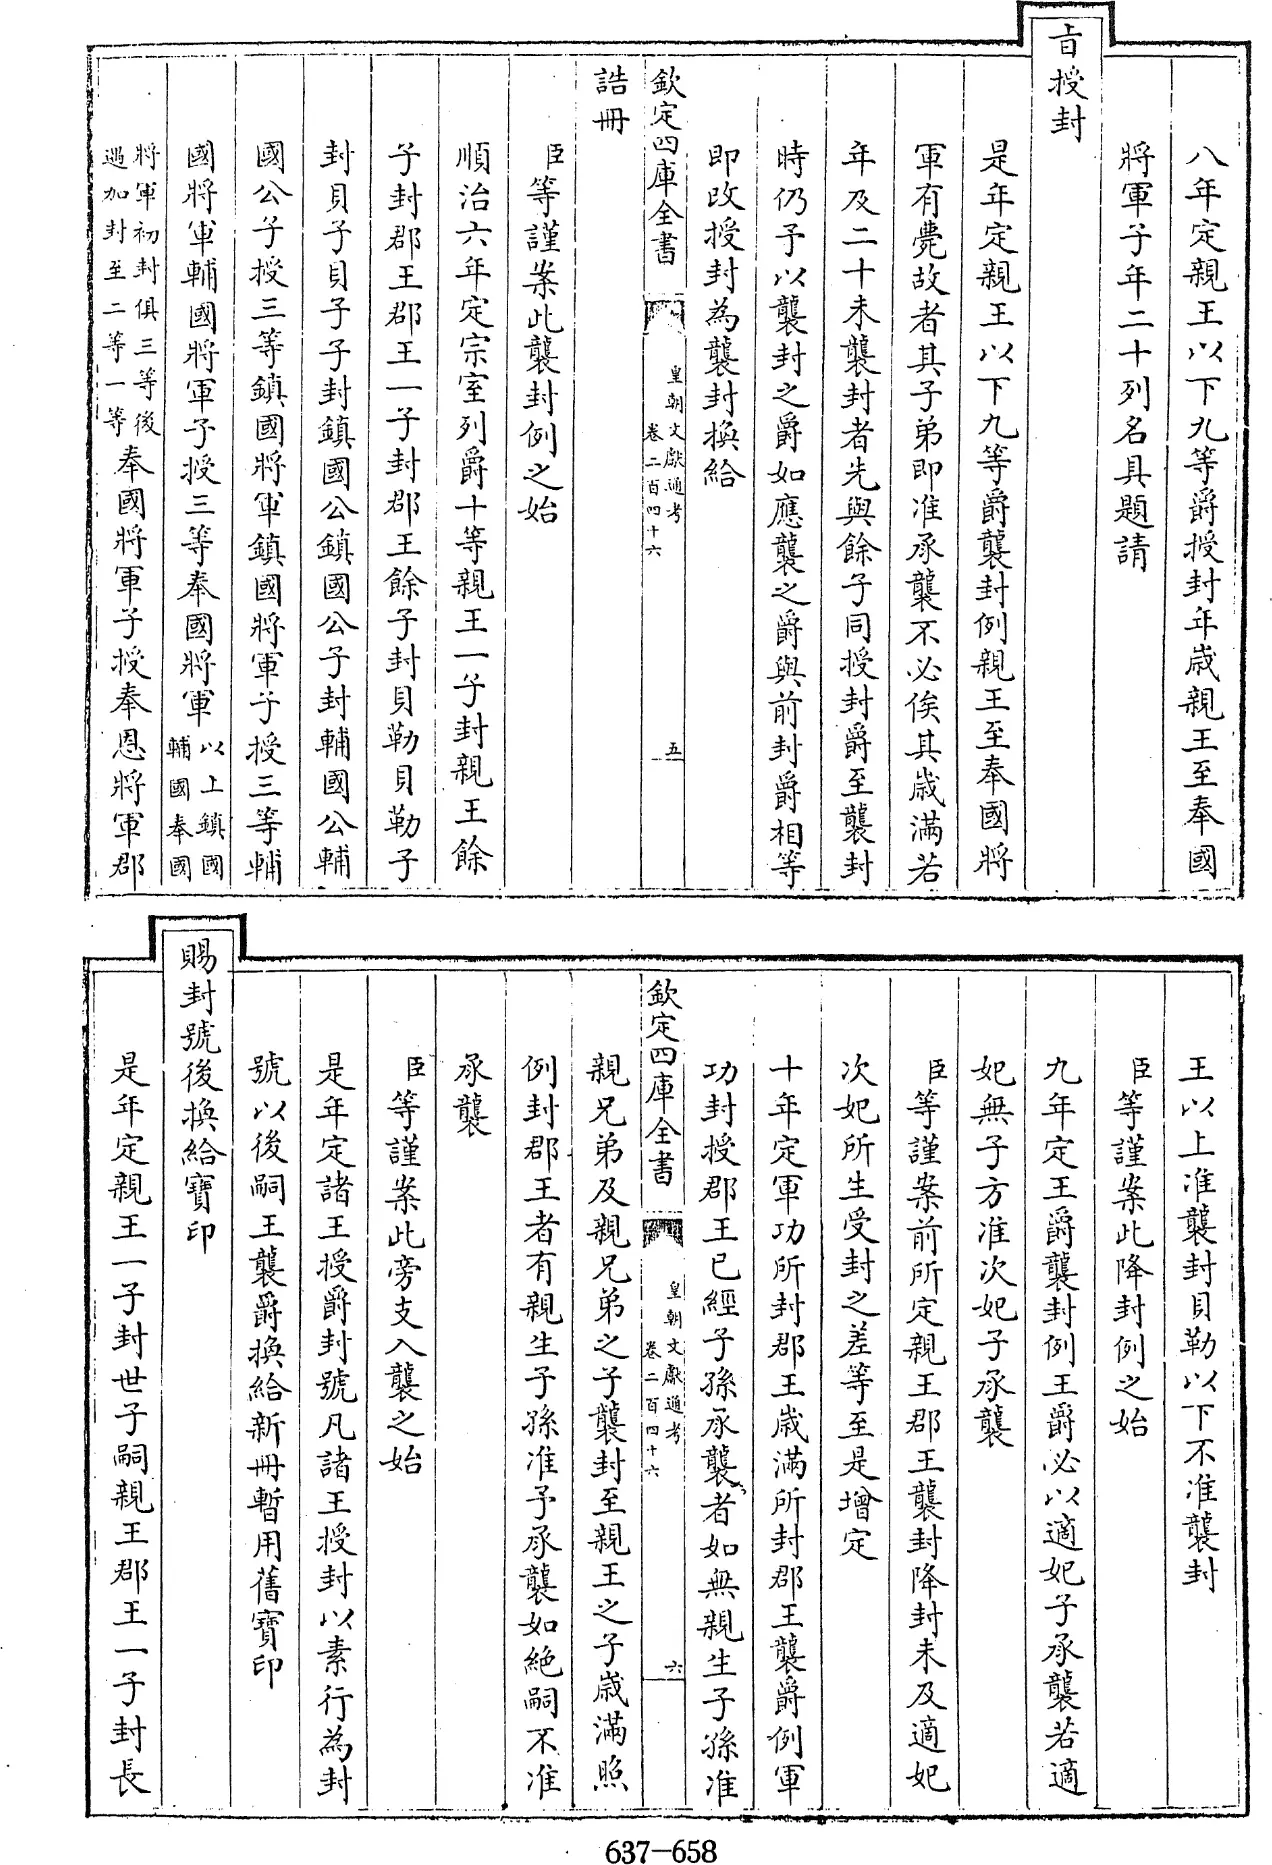 八年定親王以下九等爵授封年歳親王至奉國
將軍子年二十列名具題請
旨授封
是年定親王以下九等爵襲封例親王至奉國將
軍有薨故者其子弟即准承襲不必俟其歳滿若
年及二十未襲封者先與餘子同授封爵至襲封
時仍予以襲封之爵如應襲之爵與前封爵相等
即改授封為襲封換給
欽定四庫全書 皇朝文獻通考 卷二百四十六 五
誥冊
臣等謹案此襲封例之始
順治六年定宗室列爵十等親王一子封親王餘
子封郡王郡王一子封郡王餘子封貝勒貝勒子
封貝子貝子子封鎮國公鎮國公子封輔國公輔
國公子授三等鎮國將軍鎮國將軍子授三等輔
國將軍輔國將軍子授三等奉國將軍以上鎮國輔國奉國
將軍初封俱三等後遇加封至二等一等奉國將軍子授奉恩將軍郡
王以上准襲封貝勒以下不准襲封
臣等謹案此降封例之始
九年定王爵襲封例王爵必以適妃子承襲若適
妃無子方准次妃子承襲
臣等謹案前所定親王郡王襲封降封未及適妃
次妃所生受封之差等至是增定
十年定軍功所封郡王歳滿所封郡王襲爵例軍
功封授郡王已經子孫承襲者如無親生子孫准
欽定四庫全書 皇朝文獻通考 卷二百四十六 六
親兄弟及親兄弟之子襲封至親王之子歳滿照
例封郡王者有親生子孫准予承襲如絶嗣不准
承襲
臣等謹案此旁支入襲之始
是年定諸王授爵封號凡諸王授封以素行為封
號以後嗣王襲爵換給新冊暫用舊寶印
賜封號後換給寶印
是年定親王一子封世子嗣親王郡王一子封長
637-658